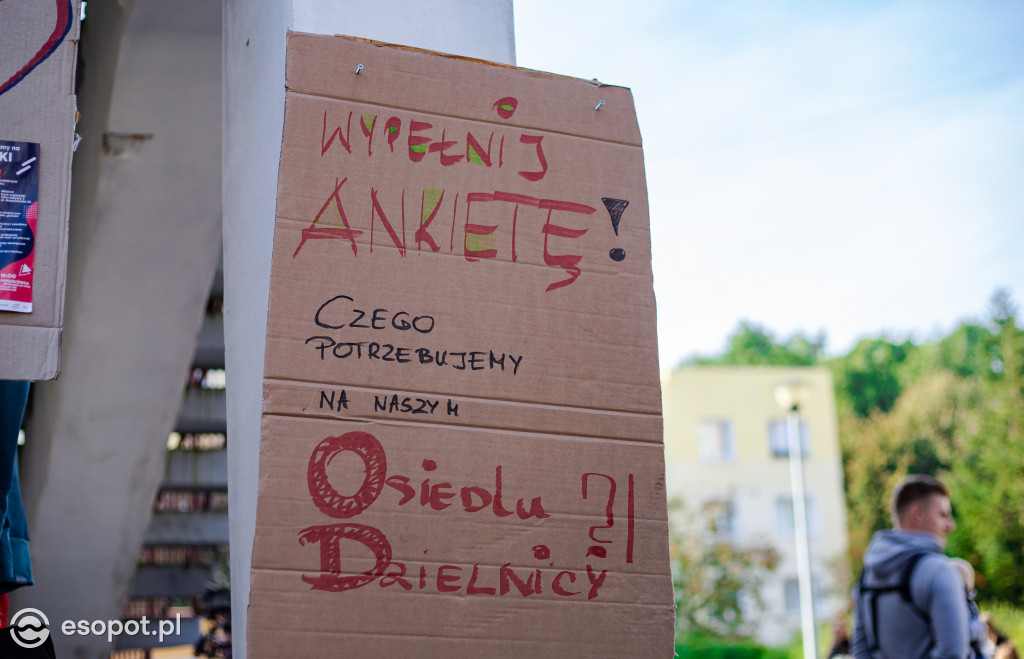 WYPEŁNIJ
ANKIETĘ!
CZEGO
POTRZEBUJEMY
NA NASZYM
OSIEDLU
DZIELNICY ?!
my na
KI
esopot.pl